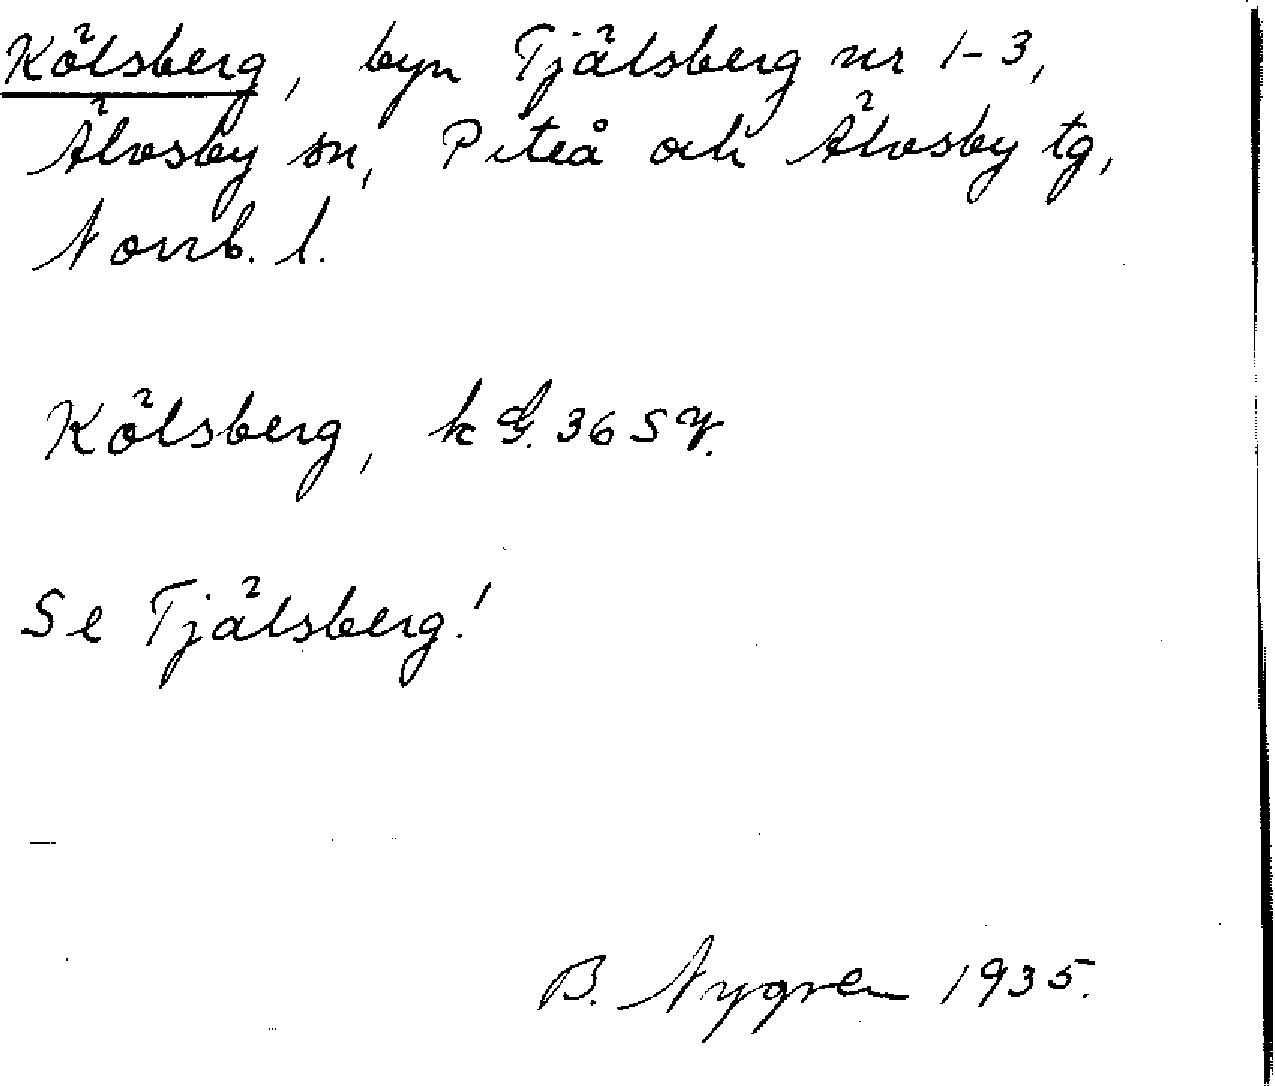 Kälsberg, byn Tjälsberg nr 1-3,
Älvsby sn, Piteå och Älvsby tg,
Norrb. l.
Kölsberg, k
Se Tjälsberg!
B. Nygren 1935.